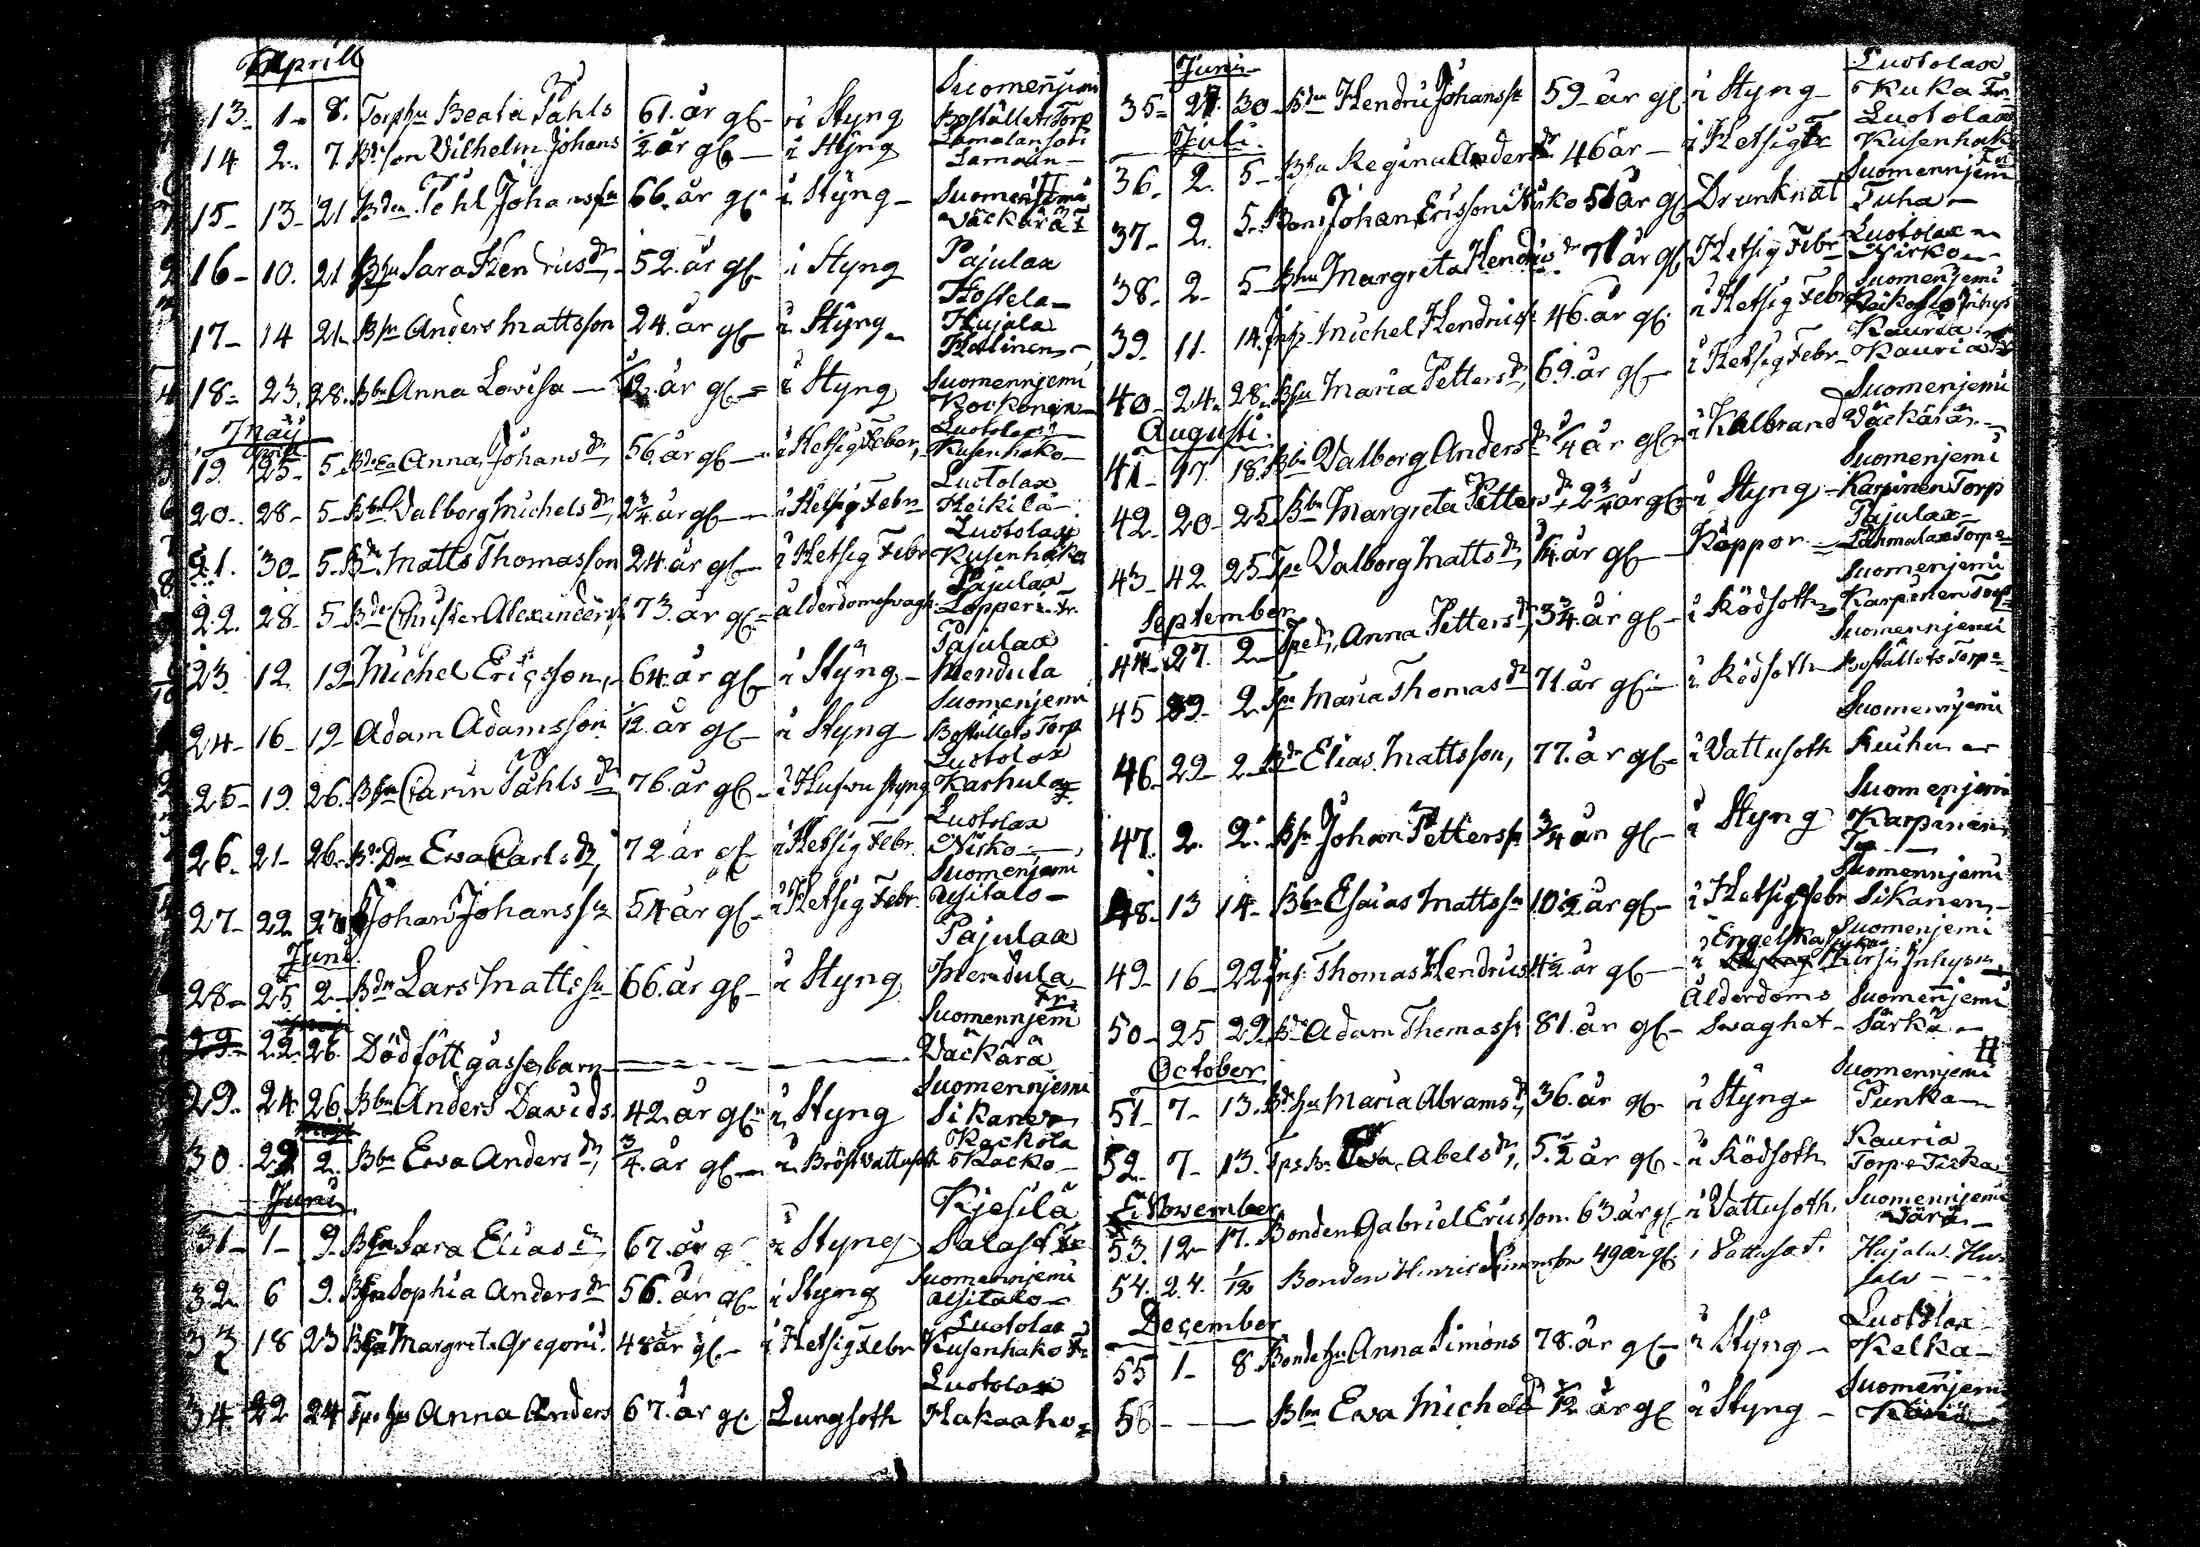 Aprill
13. 1. 8. Torphu Beata Påhls 61. år gl. i Styng Suomenjemi Boställets Torp
14 2. 7. Bdeson Vilhelm Johans ½ år gl. i Styng Lamalansari Lamain
15 13 21 Bden Pehl Johansson 66. år gl. i Styng Suomenjemi Väckärä
16 10. 21 Bhu Sara Hendrics dr 52. år gl i Styng Pajulax Hostela
17 14 21. Bsn Anders Mattsson 24. år gl i Styng Hujala Halinen
18 23. 28. Bbn Anna Lovisa 1/12. år gl i Styng Suomennjemi Kockonen
Maij
19. 25 5 Anna Johans dr 56. år gl i Hetsig Feber, Luotolax Kusenhako
20. 28 5 Bbn Valborg Michels dr 2¾ år gl i Hetsig Febr Luotolax Heikilä
21. 30 5 Bdn Matts Thomasson 24. år gl i Hetsig Febr Luotolax Kusenhako
22. 28 5 Bdn Christer Alexanders 73. år gl ålderdomsvagh Pajulax Lopperi Tr.
23 12 19 Michel Ericsson, 64. år gl i Styng Pajulax Mendula
24 16 19 Adam Adamsson 1/12. år gl i Styng Suomenjemi Boställets Torp
25 19. 26. Bhu Carin Påhls dr 76. år gl i Hufvu styng Luotolax Karhula
26. 21 26. Ewa Carls dr 72 år gl i Hetsig Febr. Luotolax Nirko
27 22 27 Johan Johansson 54 år gl i Hetsig Febr. Suomenjemi Ylsitalo
Juni.
28 25 2 Bdn Lars Mattsson 66. år gl i Styng Pajulax Mendula
29 22 26. Dödfött gåssebarn Suomennjemi Väckärä
29. 24 26 Bbn Anders Dawids 42. år gl i Styng Suomennjemi Sikanen
30. 29 2. Bbn Ewa Anders dr, ¾. år gl i Bröst Vattusoth Kackola Kacko
Juni
31 1 9. Bhu Sara Elias dr 67. år gl i Styng Kjesilä Salast
32. 6 9. Bhu Sophia Anders dr 56. år gl. i Styng Suomennjemi
33 18 23 Bhu Margreta Gregori 48 år gl. i Hetsig febr Luotolax Kusenhako
34 22 24 Tpehu Anna Anders 67. år gl Lungsoth Luotolax Hakaaho
Juni
35 27. 30 Bdn Hendric Johansson 59 år gl. i Styng Luotolax Kuka Tr.
Juli.
36. 2. 5 Bhu Regina Anders dr 46 år i Hetsig Luotolax Kusenhak
37 2. 5. Bons Johan Ericsson 51 år gl Drunknat Suomennjemi Tuha
38. 2 5 Bhu Margreta Hendrics dr 71 år gl Hetsig Febr Luotolax Nirko
39. 11. 14. Inhs Michel Hendricss 46. år gl. i Hetsig Febr Suomenjemi
40 24. 28. Bhu Maria Petters dr, 69. år gl i Hetsig Febr Kauria Kauria
Augusti.
41 17. 18. Bbn Valborg Anders dr ¼ år gl i Kalbrand Suomenjemi Väckärä
42. 20 25 Bbn Margreta Petters dr 2¾ år gl i Styng Suomenjemi Karpinen Torp
43 42 25 Tpe Valborg Matts dr, ¼. år gl Koppor Pajulax Lahmalax Torpe
September
44 27. 2 Anna Petters dr, 3¾ år gl i Rödsoth Suomenjemi Karpinen Torp
45 29 2. Maria Thomas dr 71. år gl i Rödsoth Suomennjemi Boställets Torpe
46. 29 2 Bdn Elias Mattsson, 77. år gl i Vattusoth Suomennjemi
47. 2. 2. Bsn Johan Petterss ¾ år gl i Styng Suomenjemi Karpinen
48 13 14 Bbn Esaias Mattsson 10½ år gl i Hetsig febr Suomennjemi Sikanen
49 16 22 Inhs. Thomas Hendrics 4½ år gl i Engelska Suomenjemi
50 25 29. Bdn Adam Thomass 81. år gl Ålderdoms Swaghet Suomenjemi Särkä
October
51 7 13. Bdehu Maria Abrams dr, 36. år gl i Styng Suomennjemi Punka
52. 7 13. Ewa Abels dr, 5½ år gl i Rödsoth Kauria Torpe Ticka
November
53. 12 17. Bonden Gabriel Ericsson. 63. år gl i Vattusoth. Suomennjemi Särä
54. 24. 1/12 Bonden Henric Simonson 49 år gl. i Vattusot. Hujala Hujala
December
55 1 8 Bondehu Anna Simons 78. år gl i Styng Luotolax Kelka
56 Bbn Ewa Michels 1/12 år gl i Styng Suomenjemi